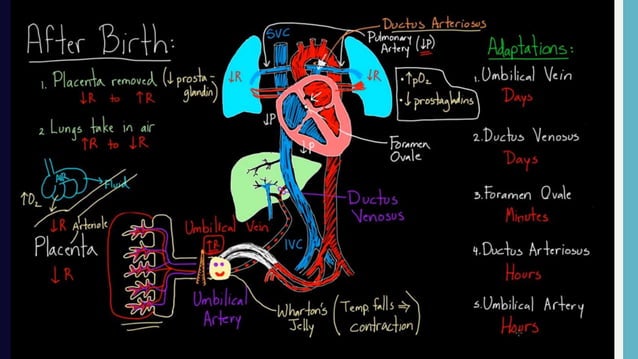 After Birth:
1. Placenta removed (↓prosta-
glandin)
↓R to ↑R
2. Lungs take in air
↑R to ↓R
AIR
Fluid
↑O₂
↓R Arteriole
Placenta
↓R
SVC
Ductus Arteriosus
Pulmonary
Artery (↓P)
↓R
↓R
• ↑pO₂
• ↓prostaglndins
↓P
↓P
Foramen
Ovale
Ductus
Venosus
Umbilical Vein
↑R
IVC
Umbilical
Artery
Wharton's
Jelly
(Temp falls ⇒
contraction)
Adaptations:
1. Umbilical Vein
Days
2. Ductus Venosus
Days
3. Foramen Ovale
Minutes
4. Ductus Arteriosus
Hours
5. Umbilical Artery
Hours